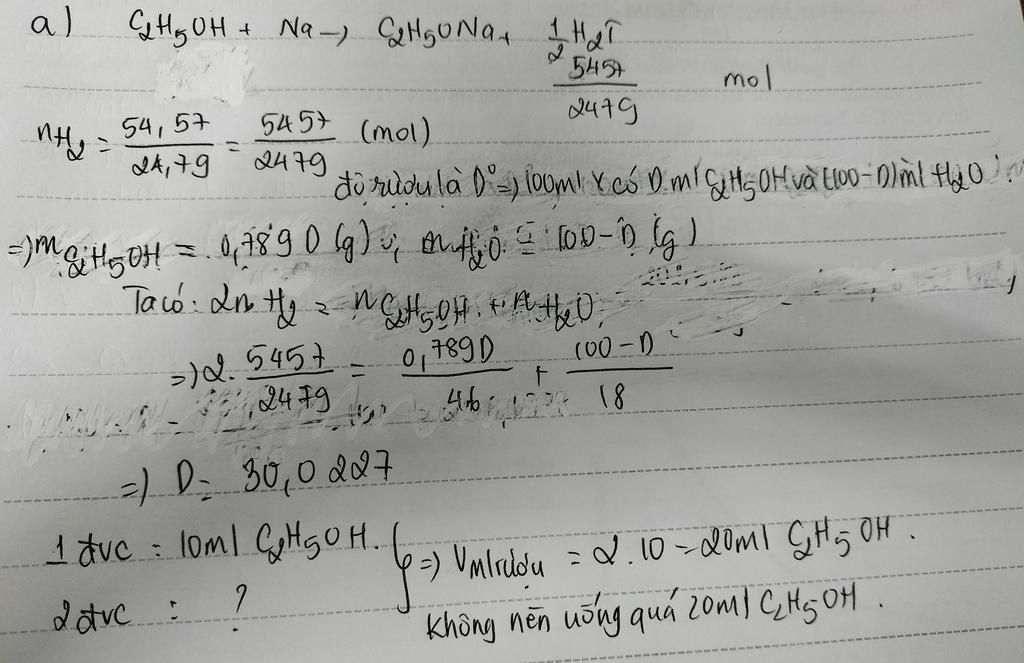 a) C2H5OH + Na → C2H5ONa + 1/2 H2↑
5457/2479 mol
nH2 = 54,57/24,79 = 5457/2479 (mol)
độ rượu là D° => 100ml X có D ml C2H5OH và (100-D) ml H2O
=> mC2H5OH = 0,789D (g) ; mH2O = 100-D (g)
Ta có: 2nH2 = nC2H5OH + nH2O
=> 2. 5457/2479 = 0,789D/46 + 100-D/18
=> D = 30,0227
1 đvc = 10ml C2H5OH. } => Vml rượu = 2.10 = 20ml C2H5OH.
2 đvc : ?
Không nên uống quá 20ml C2H5OH.